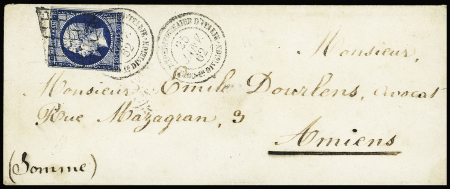 Monsieur,
Monsieur Emile Dourlens, avocat
Rue Mazagran, 3
Amiens
(Somme)